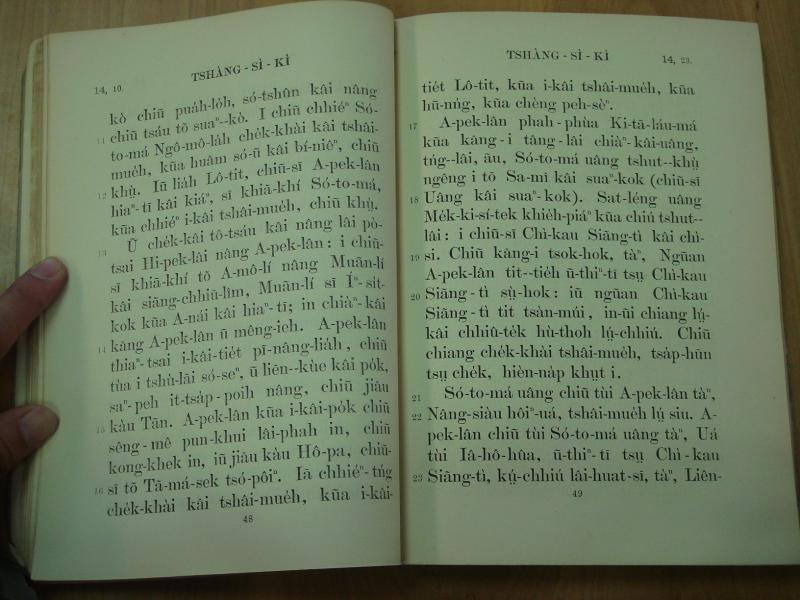 14, 10.
TSHÀNG - SÌ - KÌ
kò chiū pua̍h-lo̍h, só-tshûn kâi nâng
chiū tsáu tõ suaⁿ--kò. I chiū chhiéⁿ Só-
11
to-má Ngô-mô-la̍h che̍k-khài kâi tshâi-
mue̍h, kūa huâm só-ũ kâi bí-niéⁿ, chiū
khṳ̀. Iū lia̍h Lô-tit, chiū-sĩ A-pek-lân
12
hiaⁿ-tĩ kâi kiáⁿ, sĩ khiã-khí Só-to-má,
kūa chhiéⁿ i-kâi tshâi-mue̍h, chiū khṳ̀.
13
Ũ che̍k-kâi tô-tsáu kâi nâng lâi pò-
tsai Hi-pek-lâi nâng A-pek-lân: i chiū-
sĩ khiã-khí tõ A-mô-lí nâng Muān-lí
kâi siāng-chhiū-lîm, Muān-lí sĩ Íⁿ-si̍t-
kok kūa A-nái kâi hiaⁿ-tĩ; in chiàⁿ-kâi
14
kāng A-pek-lân ũ mêng-ieh. A-pek-lân
thiaⁿ-tsai i-kâi-tie̍t pī-nâng-lia̍h, chiū
tùa i tshù-lāi só-seⁿ, ũ liēn--kùe kâi po̍k,
saⁿ-peh it-tsa̍p-poih nâng, chiū jiâu
kàu Tān.
15
A-pek-lân kūa i-kâi-po̍k chiū
sêng-mê pun-khui lâi-phah in, chiū
kong-khek in, iū jiâu kàu Hô-pa, chiū-
16
sĩ tõ Tā-má-sek tsó-pôiⁿ. Iā chhiéⁿ-tńg
che̍k-khài kâi tshâi-mue̍h, kūa i-kâi-
48
TSHÀNG - SÌ - KÌ
14, 23.
tie̍t Lô-tit, kūa i-kâi tshâi-mue̍h, kūa
hũ-nńg, kūa chèng peh-sèⁿ.
17
A-pek-lân phah-phùa Ki-tā-láu-má
kūa kāng-i tâng-lâi chiàⁿ-kâi-uâng,
tńg--lâi, āu, Só-to-má uâng tshut--khṳ̀
ngêng i tõ Sa-mi kâi suaⁿ-kok (chiū-sĩ
18
Uâng kâi suaⁿ-kok). Sat-léng uâng
Me̍k-ki-sí-tek khie̍h-piáⁿ kūa chiú tshut--
lâi: i chiū-sĩ Chì-kau Siāng-tì kâi chì-
19
si. Chiū kāng-i tsok-hok, tàⁿ, Ngũan
A-pek-lân tit--tie̍h ũ-thiⁿ-tī tsṳ Chì-kau
20
Siāng-tì sṳ̀-hok: iū ngũan Chì-kau
Siāng-tì tit tsàn-múi, in-ũi chiang lṳ́-
kâi chhiû-te̍k hù-thoh lṳ́-chhiú. Chiū
chiang che̍k-khài tshâi-mue̍h, tsa̍p-hūn
tsṳ che̍k, hièn-na̍p khṳt i.
21
Só-to-má uâng chiū tùi A-pek-lân tàⁿ,
22
Nâng-siàu hôiⁿ-uá, tshâi-mue̍h lṳ́ siu. A-
pek-lân chiū tùi Só-to-má uâng tàⁿ, Uá
tùi Iâ-hô-hûa, ũ-thiⁿ-tī tsṳ Chì-kau
23
Siāng-tì, kṳ́-chhiú lâi-huat-sī, tàⁿ, Liên-
49